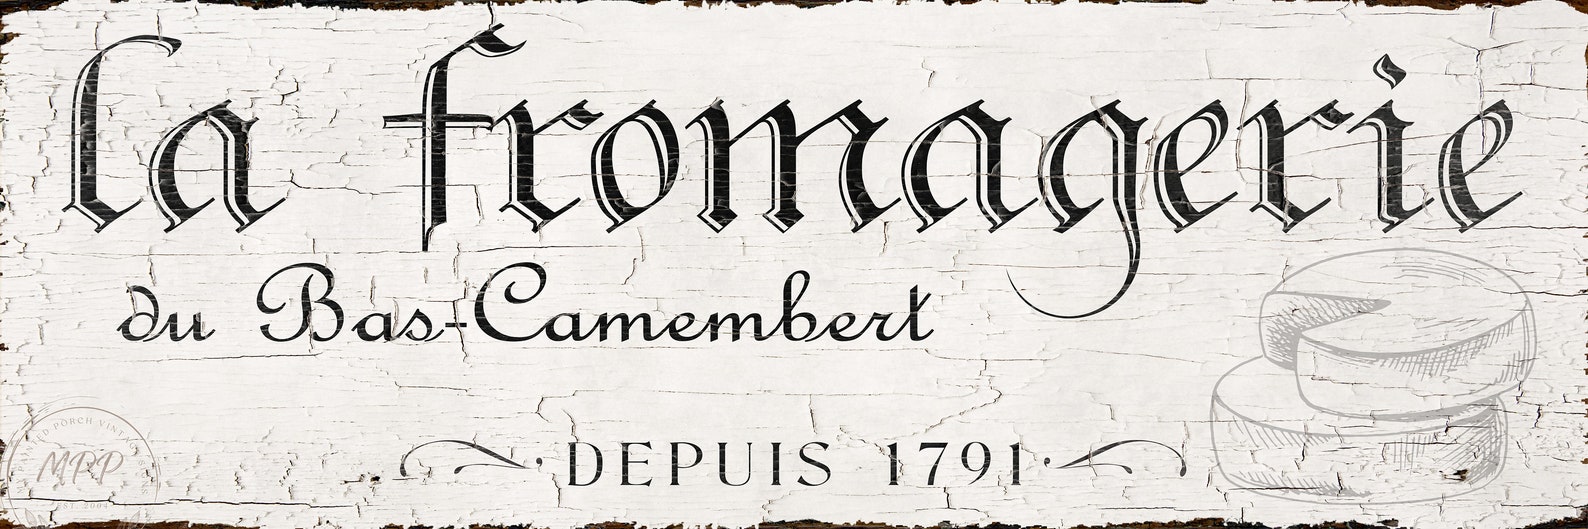 la fromagerie
du Bas-Camembert
DEPUIS 1791
PORCH VINTAGE
MPP
EST. 2004